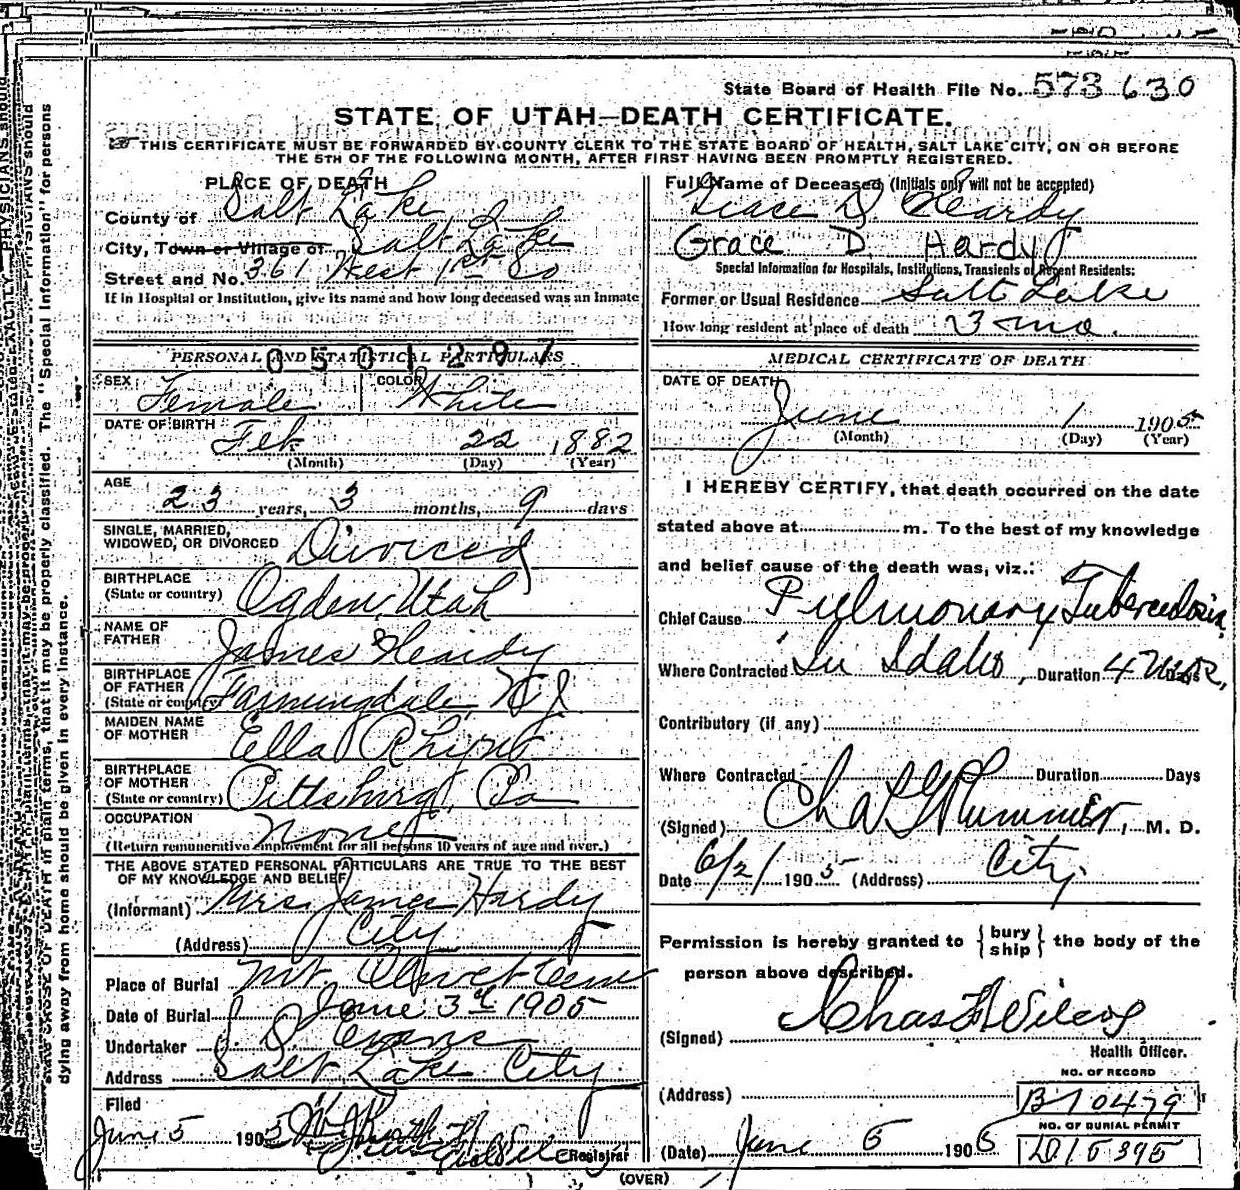 State Board of Health File No. 573 630
STATE OF UTAH—DEATH CERTIFICATE.
THIS CERTIFICATE MUST BE FORWARDED BY COUNTY CLERK TO THE STATE BOARD OF HEALTH, SALT LAKE CITY, ON OR BEFORE
THE 5TH OF THE FOLLOWING MONTH, AFTER FIRST HAVING BEEN PROMPTLY REGISTERED.
PLACE OF DEATH
County of Salt Lake
City, Town or Village of Salt Lake
Street and No. 361 West 1st So
If in Hospital or Institution, give its name and how long deceased was an Inmate
Full Name of Deceased (Initials only will not be accepted)
Grace D. Hardy
Grace D. Hardy
Special Information for Hospitals, Institutions, Transients or Recent Residents:
Former or Usual Residence Salt Lake
How long resident at place of death 3 mo.
PERSONAL AND STATISTICAL PARTICULARS
0501297
SEX Female COLOR White
DATE OF BIRTH Feb 22 1882
(Month) (Day) (Year)
AGE
23 years, 3 months, 9 days
SINGLE, MARRIED,
WIDOWED, OR DIVORCED Divorced
BIRTHPLACE
(State or country) Ogden, Utah
NAME OF
FATHER James Hardy
BIRTHPLACE
OF FATHER
(State or country) Farmingdale, N J
MAIDEN NAME
OF MOTHER Ella
BIRTHPLACE
OF MOTHER
(State or country) Pittsburg, Pa
OCCUPATION None
(Return remunerative employment for all persons 10 years of age and over.)
THE ABOVE STATED PERSONAL PARTICULARS ARE TRUE TO THE BEST
OF MY KNOWLEDGE AND BELIEF
(Informant) Mrs. James Hardy
(Address) City
Place of Burial Mt. Olivet Cem
Date of Burial June 3d 1905
Undertaker S. D. Evans
Address Salt Lake City
Filed
June 5 1905
Registrar
MEDICAL CERTIFICATE OF DEATH
DATE OF DEATH
June 1 1905
(Month) (Day) (Year)
I HEREBY CERTIFY, that death occurred on the date
stated above at m. To the best of my knowledge
and belief cause of the death was, viz.:
Chief Cause Pulmonary Tuberculosis,
Where Contracted In Idaho, Duration 4
Contributory (if any)
Where Contracted Duration Days
(Signed) Chas G Plummer, M. D.
Date 6/2/ 1905 (Address) City
Permission is hereby granted to {bury ship} the body of the
person above described.
(Signed) Chas F Wilcox
Health Officer.
(Address)
NO. OF RECORD
B10479
NO. OF BURIAL PERMIT
D15395
(Date) June 5 1905
(OVER)
dying away from home should be given in every instance.